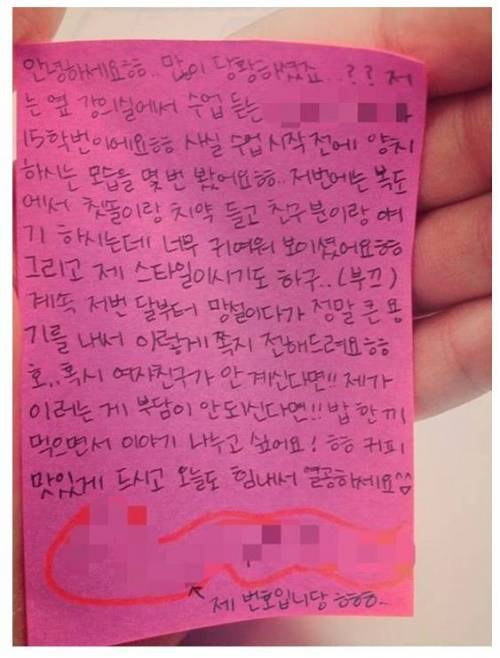 안녕하세요ㅎㅎ.. 많이 당황하셨죠...?? 저
는 옆 강의실에서 수업 듣는
15학번이에요ㅎㅎ 사실 수업시작전에 양치
하시는 모습을 몇번 봤어요ㅎㅎ.. 저번에는 복도
에서 칫뚤이랑 치약 들고 친구분이랑 얘
기 하시는데 너무 귀여워 보이셨어요ㅎㅎ
그리고 제 스타일이시기도 하구..(부끄)
계속 저번 달부터 망설이다가 정말 큰 용
기를 내서 이렇게 쪽지 전해드려요ㅎㅎ
호,,혹시 여자친구가 안 계신다면!! 제가
이러는 게 부담이 안되신다면!! 밥 한끼
먹으면서 이야기 나누고 싶어요! ㅎㅎ 커피
맛있게 드시고 오늘도 힘내서 열공하세요^^
제 번호입니당 ㅎㅎㅎ..